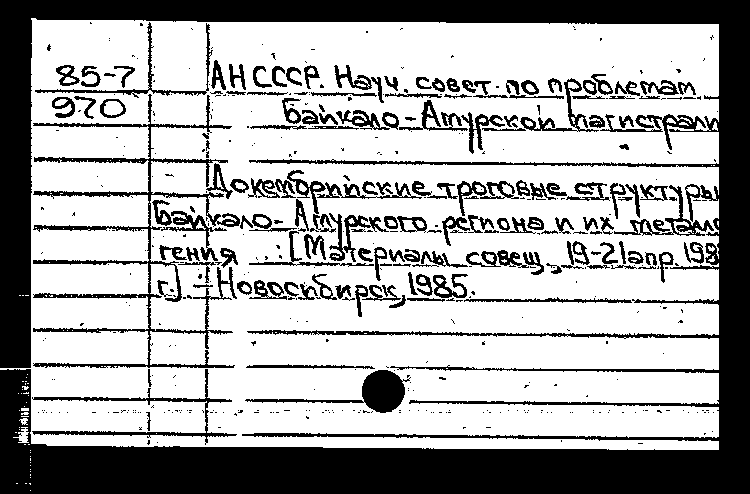 85-7 АН СССР. Науч. совет по проблемам
970 Байкало-Амурской магистрали
Докембрийские троговые структуры
Байкало-Амурского региона и их металло
гения : [Материалы совещ., 19-21 апр. 198
г.] - Новосибирск, 1985.